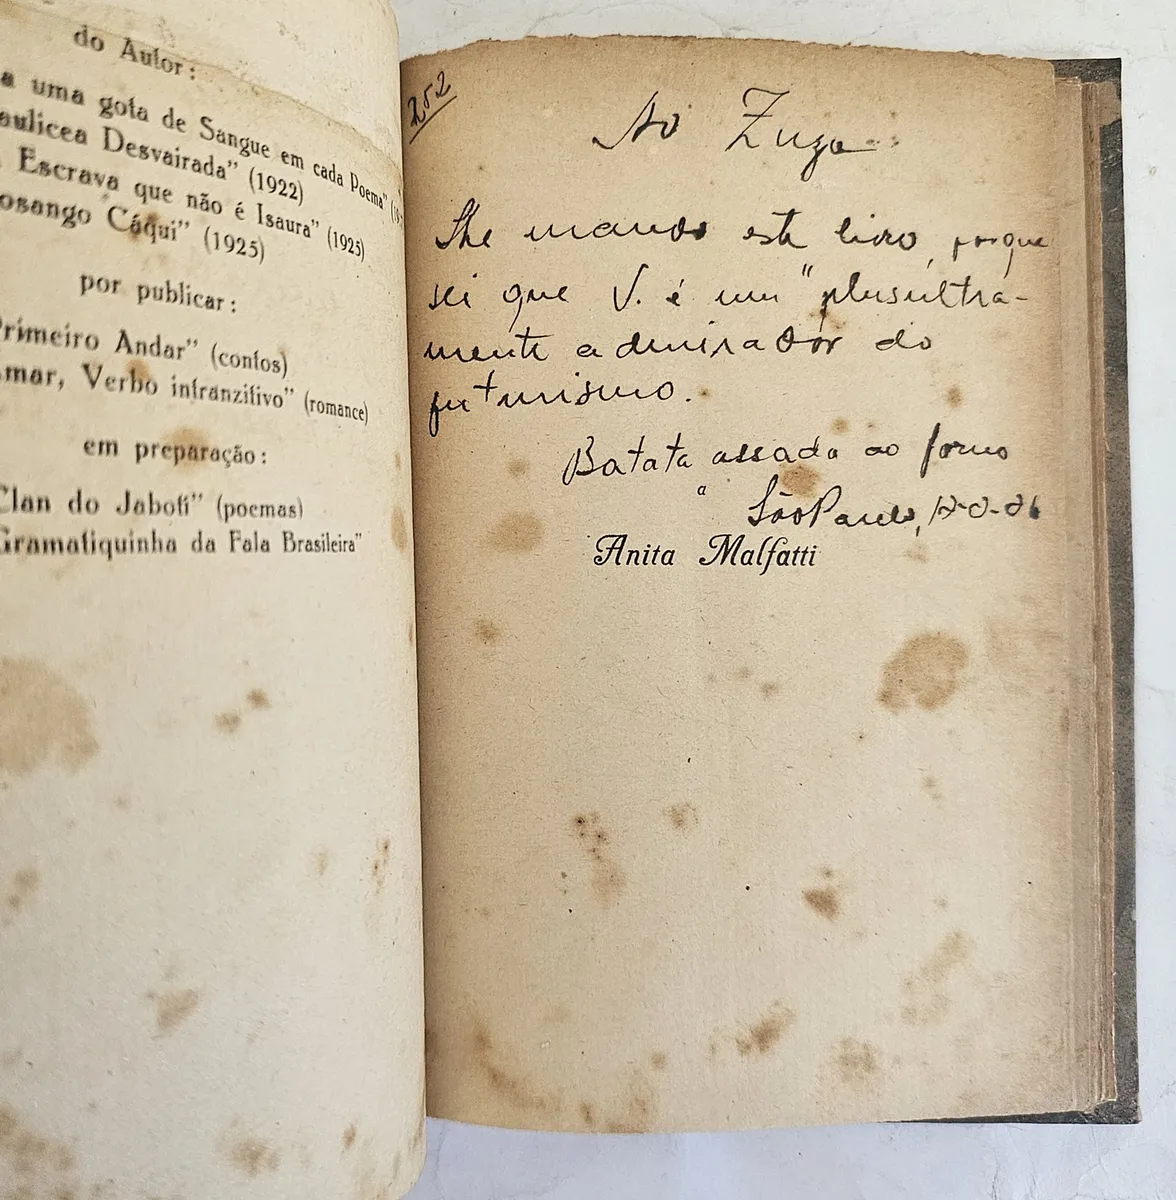 do Autor:
a uma gota de Sangue em cada Poema"
aulicea Desvairada" (1922)
Escrava que não é Isaura" (1925)
osango Cáqui" (1925)
por publicar:
Primeiro Andar" (contos)
mar, Verbo intranzitivo" (romance)
em preparação:
Clan do Jaboti" (poemas)
Gramatiquinha da Fala Brasileira"
252
Ao Zuza
Lhe mando este livro, porque
sei que V. é um "plusultra-
mente admirador do
futurismo.
Batata assada ao forno
São Paulo,
a
Anita Malfatti